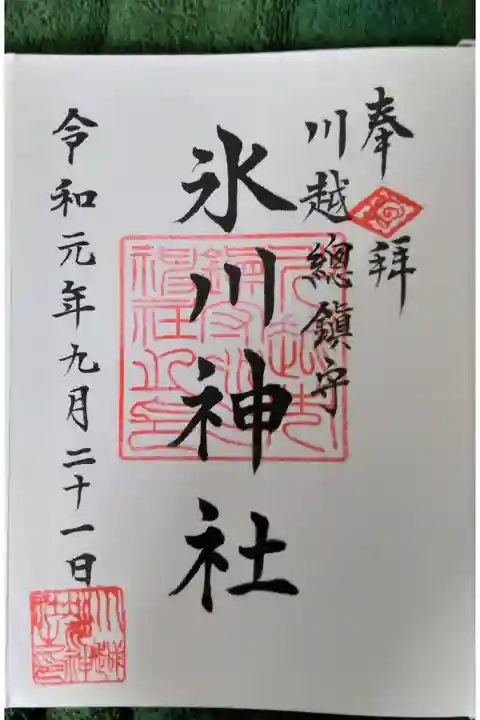 奉拝
川越總鎮守
氷川神社
令和元年九月二十一日